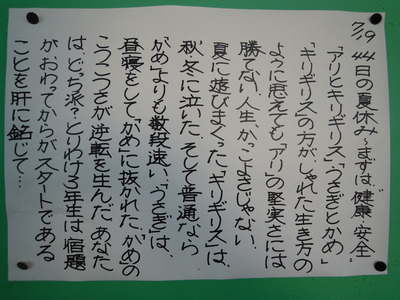 7/19 44日の夏休み～まずは、健康、安全
「アリとキリギリス」「うさぎとかめ」
「キリギリス」の方がしゃれた生き方の
ように思えても「アリ」の堅実さには
勝てない人生、かっこよさじゃない。
夏に遊びまくった「キリギリス」は、
秋、冬に泣いた。そして普通なら
「かめ」よりも数段速い「うさぎ」は、
昼寝をして「かめ」に抜かれた。「かめの
こうこつさが逆転を生んだ。あなた
は、どっち派?とりわけ3年生は宿題
がおわってからがスタートである
ことを肝に銘じて…